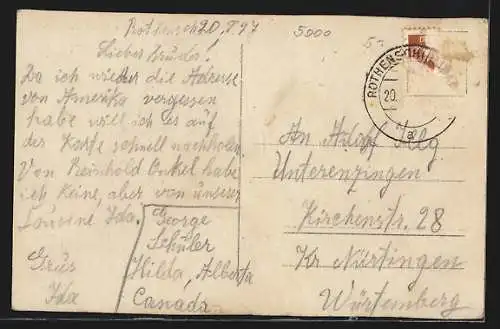 Rothensch 20.8.47
Lieber Bruder!
Da ich wieder die Adresse
von Amerika vergessen
habe will ich es auf
der Karte schnell nachholen.
Von Reinhold Onkel habe
ich keine, aber von unserer
Cousine Ida.
George
Schüler
Hilda, Alberta
Canada
Grus
Ida
5000
ROTHENS
20.
An Adolf Illg
Unterenzingen
Kirchenstr. 28
Kr Nürtingen
Würtemberg